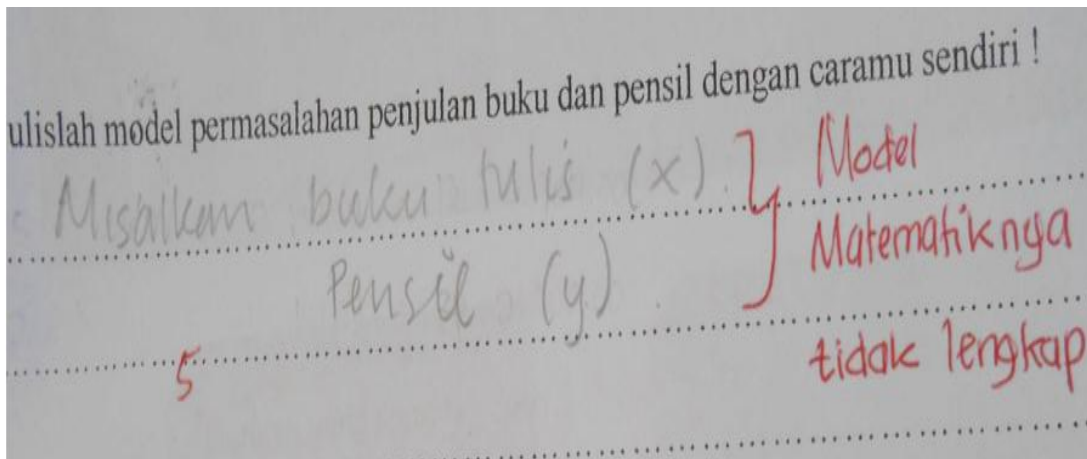 ulislah model permasalahan penjulan buku dan pensil dengan caramu sendiri !
Misalkan buku tulis (x). Model
Pensil (y). Matematiknya
5 tidak lengkap